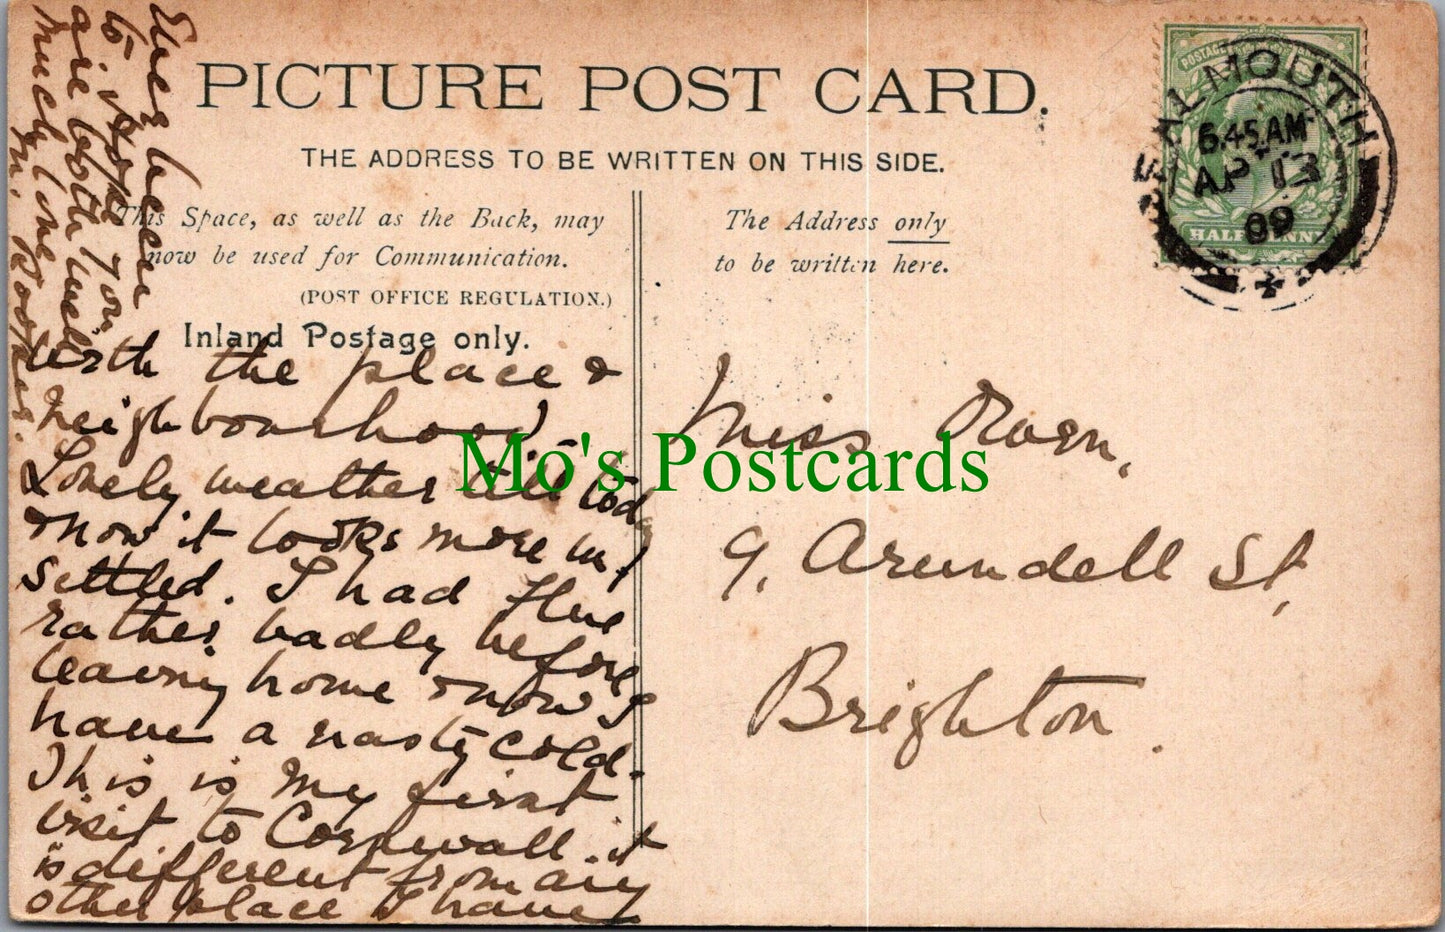 PICTURE POST CARD.
THE ADDRESS TO BE WRITTEN ON THIS SIDE.
This Space, as well as the Back, may
now be used for Communication.
(POST OFFICE REGULATION.)
Inland Postage only.
The Address only
to be written here.
POSTAGE
HALFPENNY
FALMOUTH
6.45 AM
AP 13
09
with the place &
neighbourhood.
Lovely weather till today
& now it looks more un-
settled. I had flue
rather badly before
leaving home & now I
have a nasty cold.
This is my first
visit to Cornwall. it
is different from any
other place I have
ever been
to. Hope you
are both well
much love
Miss
9, Arundell St,
Brighton.
Mo's Postcards